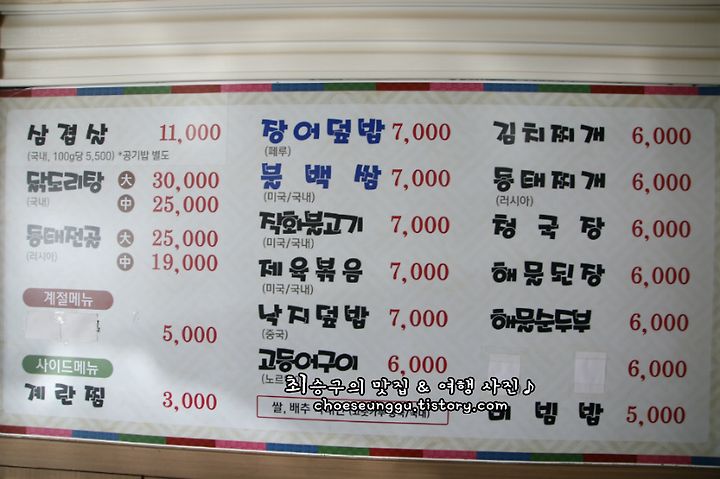 삼겹살 11,000
(국내, 100g당 5,500) *공기밥 별도
닭도리탕 大 30,000
(국내) 中 25,000
동태전골 大 25,000
(러시아) 中 19,000
계절메뉴
5,000
사이드메뉴
계란찜 3,000
장어덮밥 7,000
(페루)
불백쌈 7,000
(미국/국내)
직화불고기 7,000
(미국/국내)
제육볶음 7,000
(미국/국내)
낙지덮밥 7,000
(중국)
고등어구이 6,000
쌀, 배추
김치찌개 6,000
동태찌개 6,000
(러시아)
청국장 6,000
해물된장 6,000
해물순두부 6,000
6,000
비빔밥 5,000
최승구의 맛집 & 여행 사진♪
choeseunggu.tistory.com